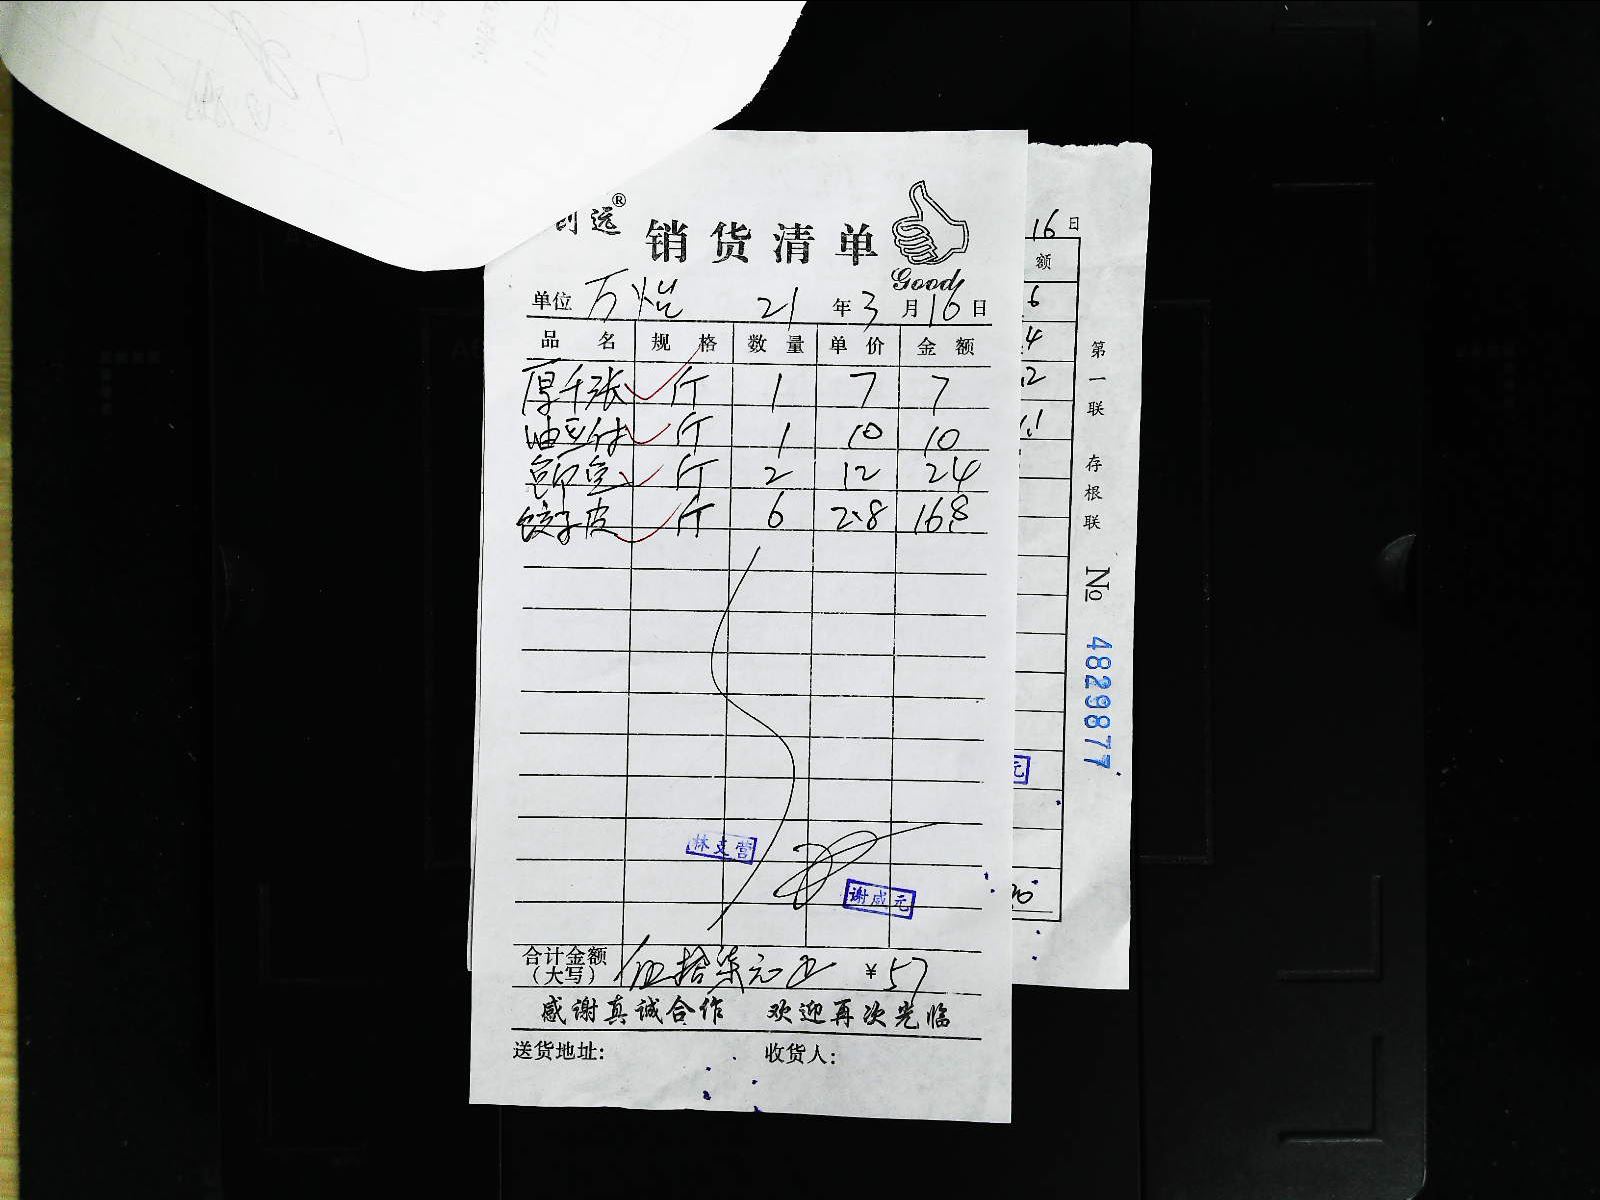 创远®
销货清单
Good
单位 万怡 21 年 3 月 16 日
品名 规格 数量 单价 金额
厚千张 斤 1 7 7
油豆付 斤 1 10 10
斤 2 12 24
饺子皮 斤 6 2.8 16.8
林 营
谢咸元
合计金额(大写) 伍拾柒元正 ¥57
感谢真诚合作 欢迎再次光临
送货地址: 收货人:
16 日
额
6
4
2
元
第一联 存根联 № 4829877